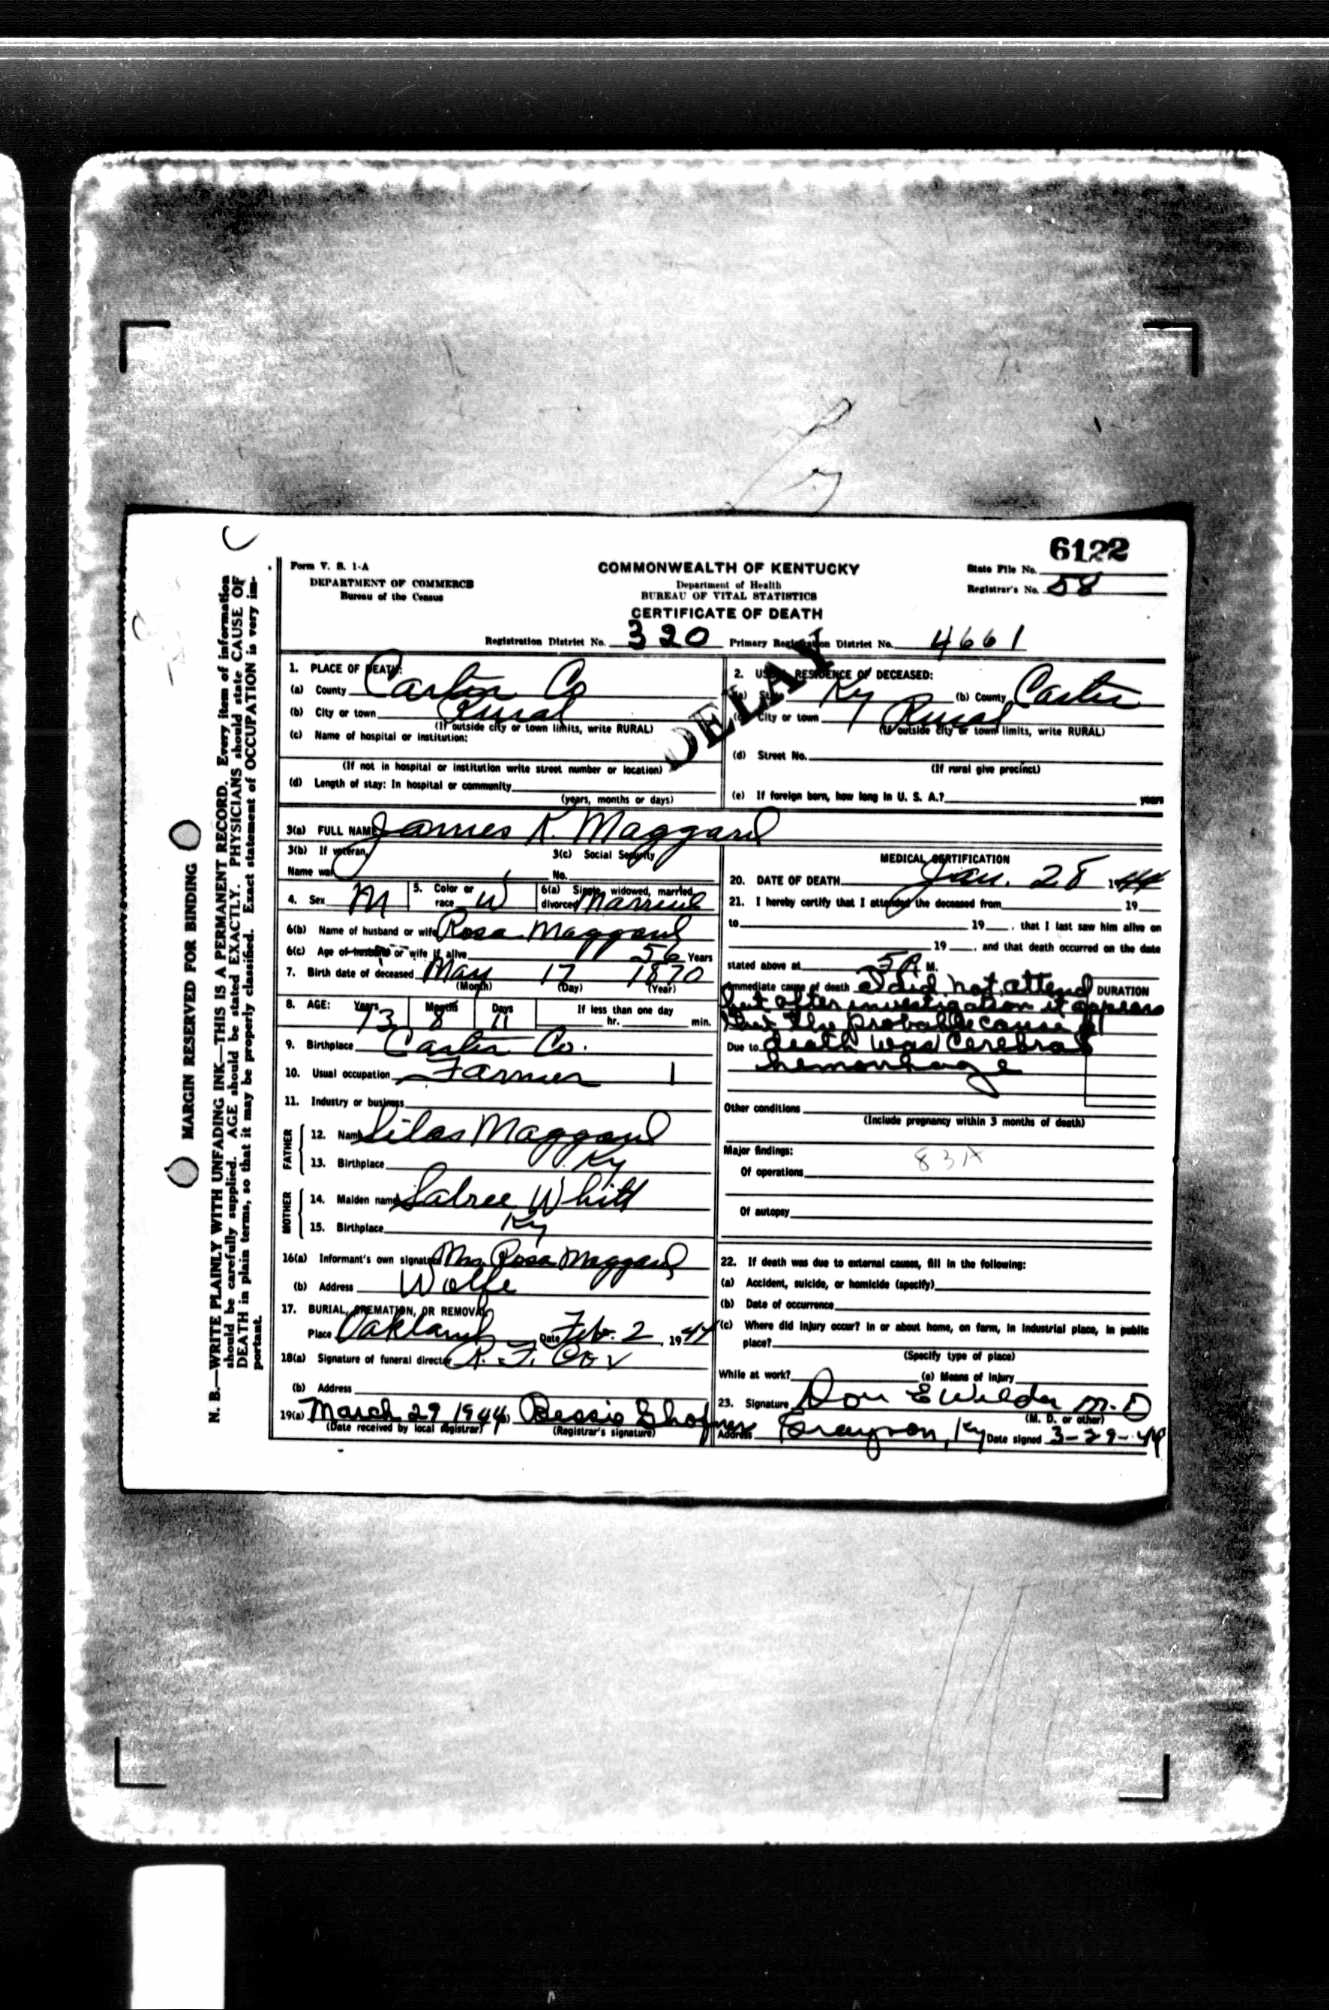 6122
Form V. S. 1-A
DEPARTMENT OF COMMERCE
Bureau of the Census
COMMONWEALTH OF KENTUCKY
Department of Health
BUREAU OF VITAL STATISTICS
CERTIFICATE OF DEATH
State File No.
Registrar's No. 58
Registration District No. 320 Primary Registration District No. 4661
DELAY
1. PLACE OF DEATH:
(a) County Carter Co
(b) City or town Rural
(If outside city or town limits, write RURAL)
(c) Name of hospital or institution:
(If not in hospital or institution write street number or location)
(d) Length of stay: In hospital or community
(years, months or days)
2. USUAL RESIDENCE OF DECEASED:
(a) State Ky (b) County Carter
(c) City or town Rural
(If outside city or town limits, write RURAL)
(d) Street No.
(If rural give precinct)
(e) If foreign born, how long in U. S. A.? years
3(a) FULL NAME James K. Maggard
3(b) If veteran,
Name war
3(c) Social Security
No.
4. Sex M 5. Color or race W 6(a) Single, widowed, married, divorced Married
6(b) Name of husband or wife Rosa Maggard
6(c) Age of husband or wife if alive 56 Years
7. Birth date of deceased May 17 1870
(Month) (Day) (Year)
8. AGE: Years 73 Months 8 Days 11 If less than one day
hr. min.
9. Birthplace Carter Co.
10. Usual occupation Farmer 1
11. Industry or business
FATHER
12. Name Silas Maggard
13. Birthplace Ky
MOTHER
14. Maiden name Sabree Whitt
15. Birthplace Ky
16(a) Informant's own signature Mrs Rosa Maggard
(b) Address Wolfe
17. BURIAL, CREMATION, OR REMOVAL
Place Oakland Date Feb. 2, 1944
18(a) Signature of funeral director R. F.
(b) Address
19(a) March 29 1944 (b) Bessie
(Date received by local registrar) (Registrar's signature)
MEDICAL CERTIFICATION
20. DATE OF DEATH Jan. 28 1944
21. I hereby certify that I attended the deceased from 19
to 19, that I last saw him alive on
19, and that death occurred on the date
stated above at 5 A M.
Immediate cause of death I did not attend DURATION
but after investigation it appears
that the probable cause of
Due to death was cerebral
hemorrhage
Other conditions
(Include pregnancy within 3 months of death)
Major findings: 83A
Of operations
Of autopsy
22. If death was due to external causes, fill in the following:
(a) Accident, suicide, or homicide (specify)
(b) Date of occurrence
(c) Where did injury occur? In or about home, on farm, in industrial place, in public
place?
(Specify type of place)
While at work? (e) Means of injury
23. Signature Don E Wilder M.D
(M. D. or other)
Address Grayson, Ky Date signed 3-29-44
MARGIN RESERVED FOR BINDING
N. B.—WRITE PLAINLY WITH UNFADING INK—THIS IS A PERMANENT RECORD. Every item of information
should be carefully supplied. AGE should be stated EXACTLY. PHYSICIANS should state CAUSE OF
DEATH in plain terms, so that it may be properly classified. Exact statement of OCCUPATION is very im-
portant.